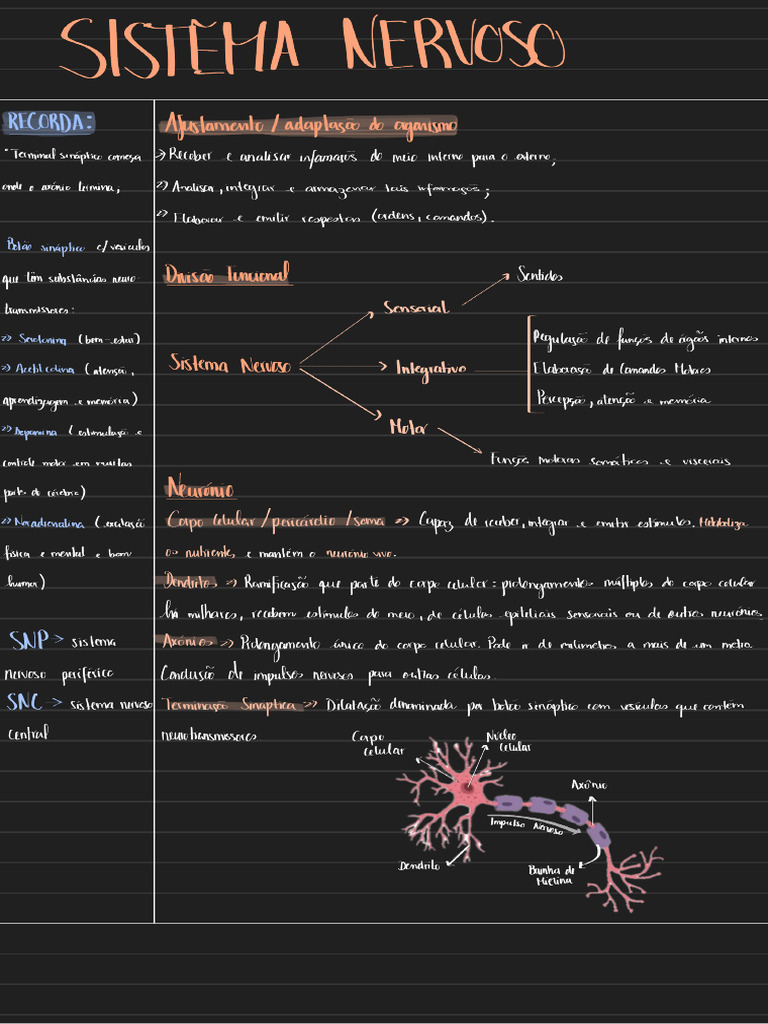 SISTEMA NERVOSO
RECORDA:
"Terminal sináptico começa
onde o axónio termina;
Botão sináptico c/ vesículas
que têm substâncias neuro-
transmissoras:
>> Serotonina (bem-estar)
>> Acetilcolina (atenção,
aprendizagem e memória)
>> Dopamina (estimulação e
controle motor em muitas
partes do cérebro)
>> Noradrenalina (excitação
física e mental e bom
humor)
SNP -> sistema
nervoso periférico
SNC -> sistema nervoso
central
Ajustamento / adaptação do organismo
>> Receber e analisar informações do meio interno para o externo;
>> Analisar, integrar e armazenar tais informações;
>> Elaborar e emitir respostas (ordens, comandos).
Divisão Funcional
Sentidos
Sensorial
Regulação de funções de órgãos internos
Sistema Nervoso
Integrativo
Elaboração de Comandos Motores
Percepção, atenção e memória
Motor
Funções motoras somáticas e viscerais
Neurónio
Corpo celular / pericárdio / soma >> Capaz de receber, integrar e emitir estímulos. Metaboliza
os nutrientes, e mantém o neurónio vivo.
Dendritos >> Ramificação que parte do corpo celular: prolongamentos múltiplos do corpo celular
há milhares, recebem estímulos do meio, de células epiteliais sensoriais ou de outros neurónios.
Axónios >> Prolongamento único do corpo celular. Pode ir de milímetros a mais de um metro.
Condução de impulsos nervosos para outras células.
Terminação Sináptica >> Dilatação denominada por botão sináptico com vesículas que contêm
neurotransmissores
Corpo
celular
Núcleo
Celular
Axónio
Impulso Nervoso
Dendrito
Bainha de
Mielina